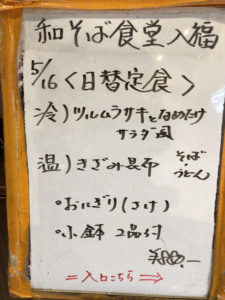 和そば食堂 入福
5/16 <日替定食>
冷) ツルムラサキとなめたけ
サラダ風
温) きざみ昆布 そば・うどん
・おにぎり(さけ)
・小鉢 2品付
¥880.-
= 入口こちら ⇒